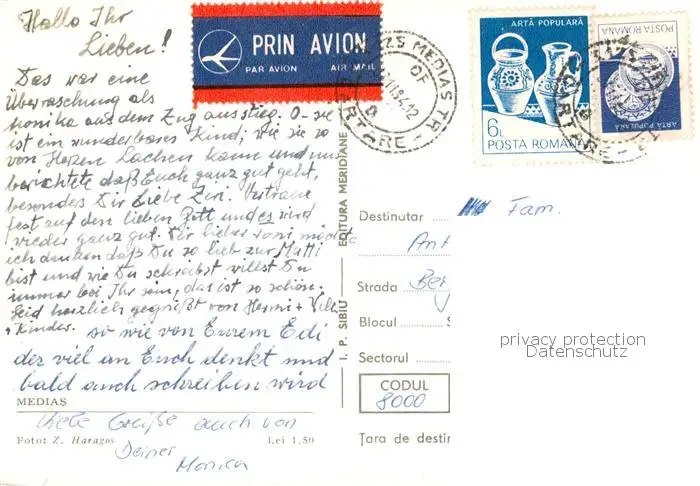 Hallo Ihr
Lieben!
Das war eine
Überraschung als
Monika aus dem Zug ausstieg. O - sie
ist ein wunderbares Kind; wie sie so
von Herzen Lachen kann und uns
berichtete daß Euch ganz gut geht,
besonders Dir Liebe Zeri. Vertraue
fest auf den lieben Gott und es wird
wieder ganz gut. Dir lieber möchte
ich danken daß Du so lieb zur Mutti
bist und wie Du schreibst willst Du
immer bei Ihr sein, das ist so schön.
Seid herzlich gegrüßt von Hermi +
+ Kinder. so wie von Eurem Edi
der viel an Euch denkt und
bald auch schreiben wird
MEDIAȘ
Viele Grüße auch von
Foto: Z. Haragos Lei 1,50
Deiner
Monica
PRIN AVION
PAR AVION AIR MAIL
I. P. SIBIU EDITURA MERIDIANE
MEDIAS TR
CARTARE
ARTĂ POPULARĂ
6L
POSTA ROMANA
POSTA ROMANA
ARTĂ POPULARĂ
Destinatar Fam.
Ant
Strada Ber
Blocul
Sectorul
CODUL
8000
Țara de destin
privacy protection
Datenschutz